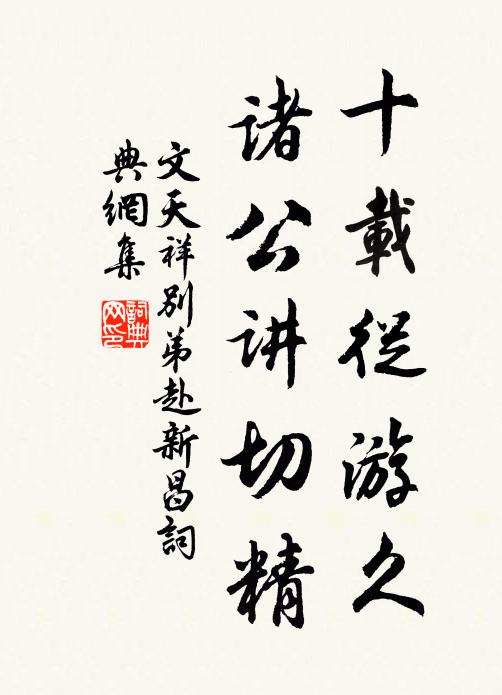 十載從游久
諸公讲切精
文天祥別弟赴新昌詞
典網集
詞典
网印